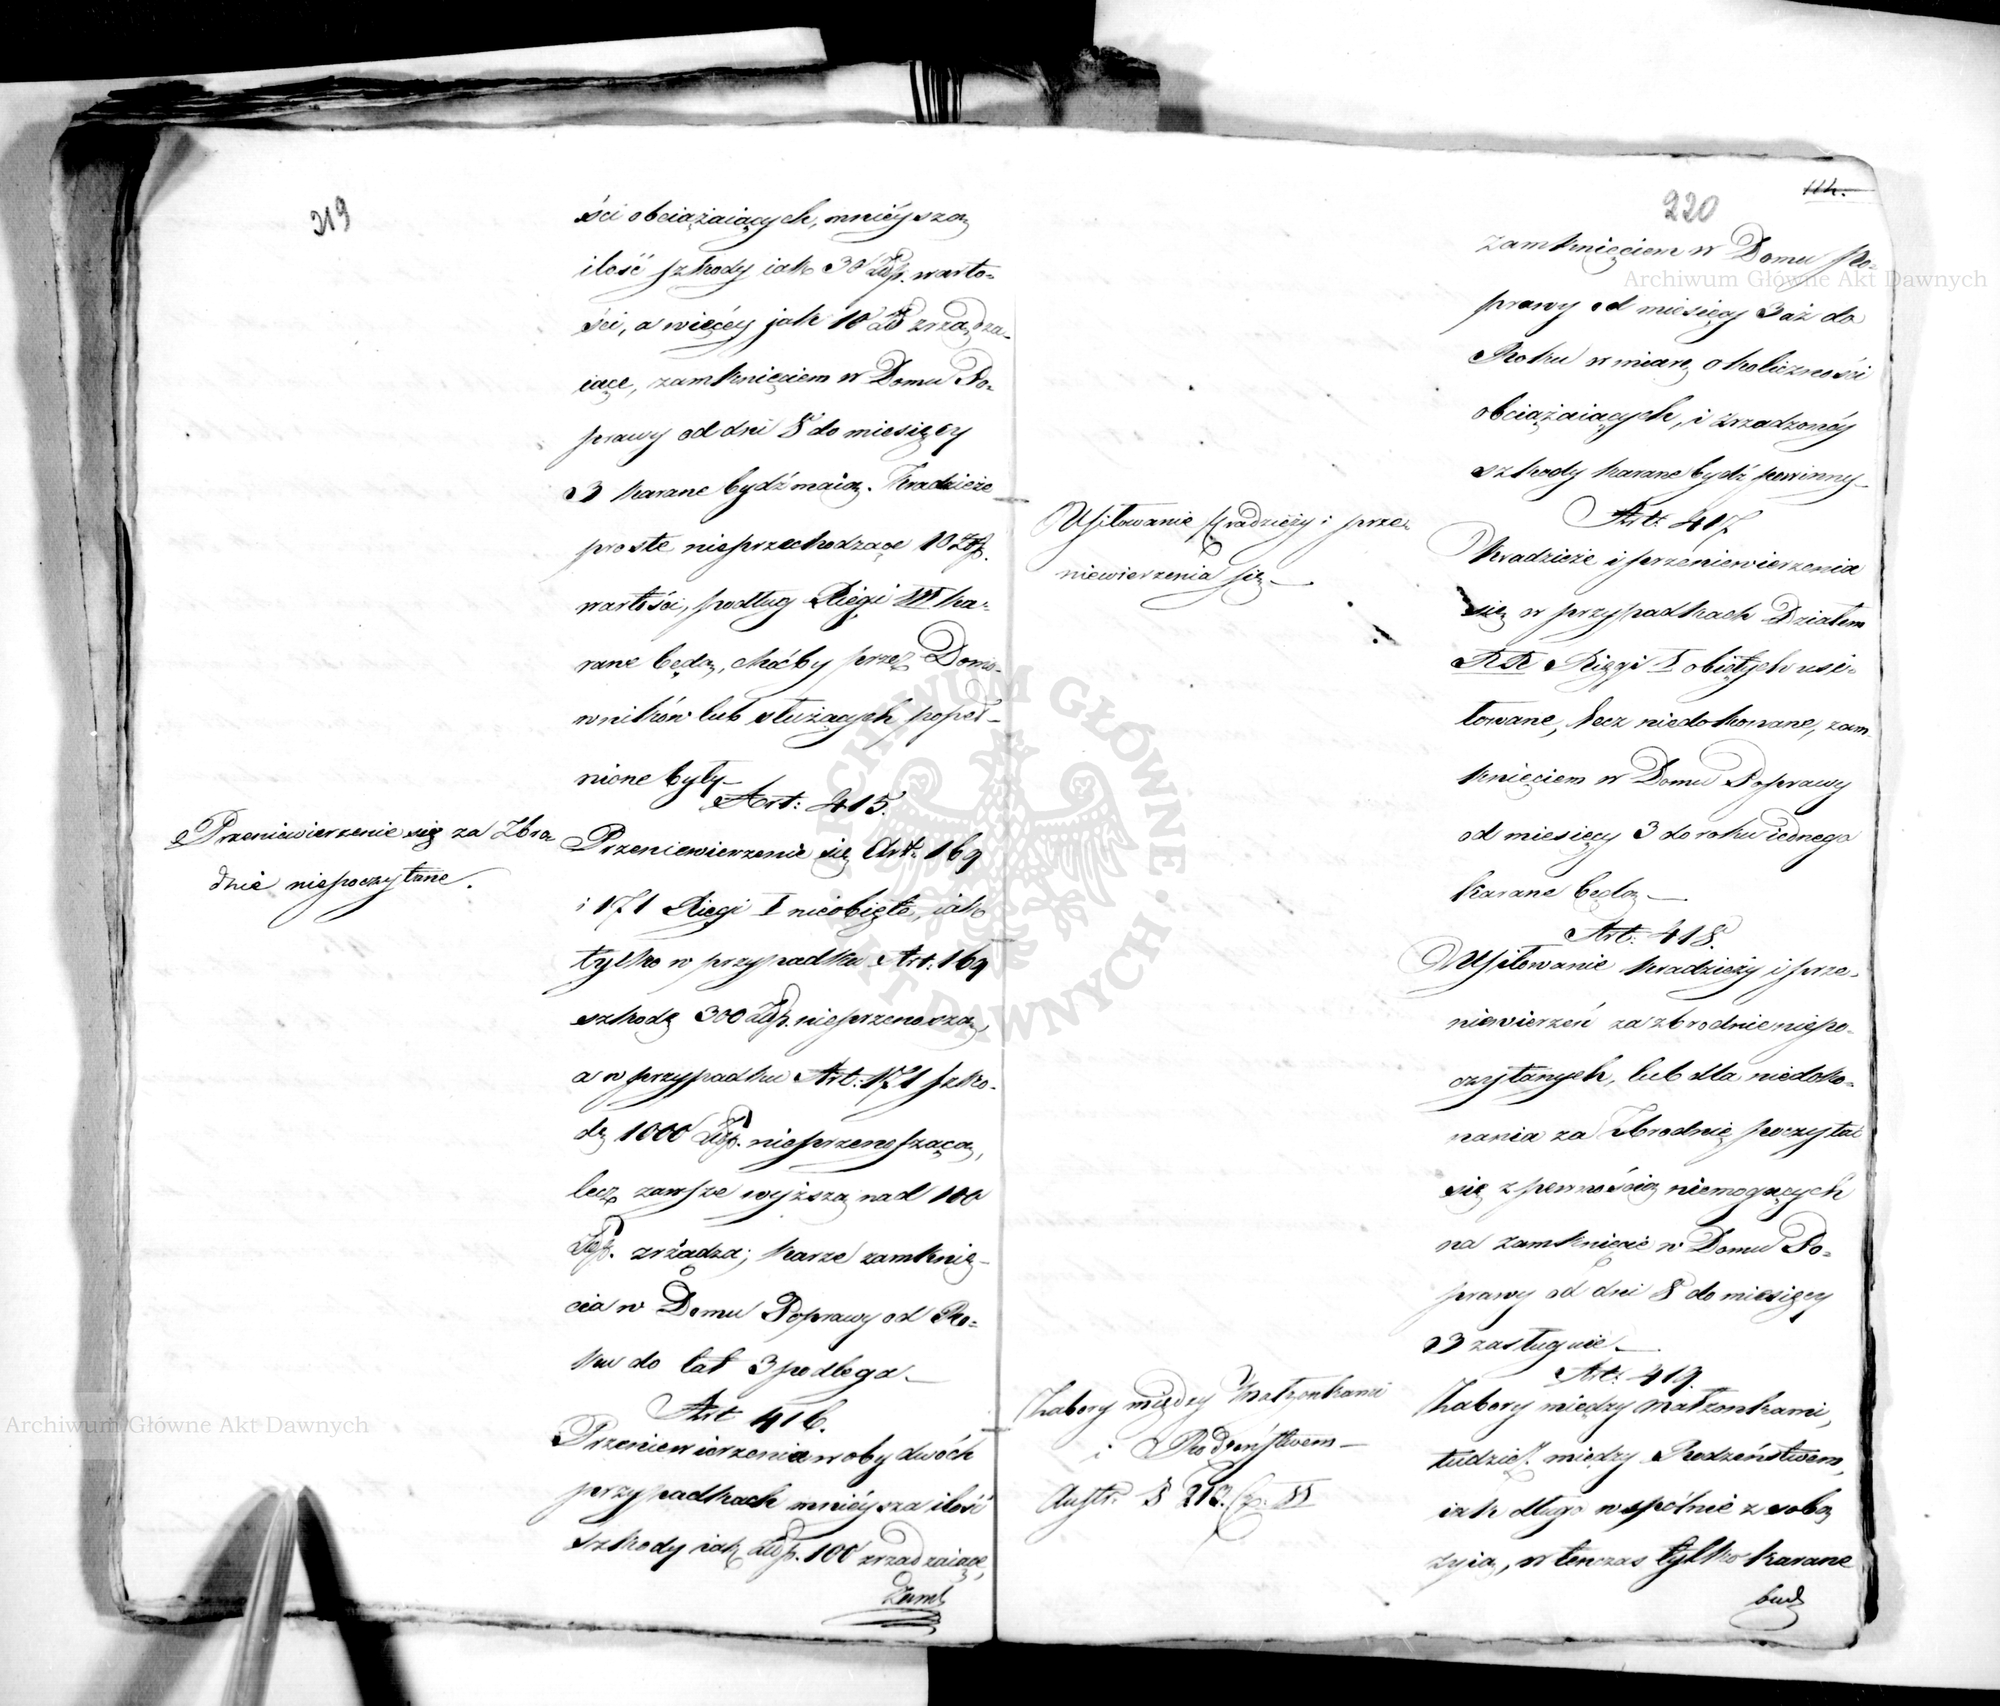 219
ści obciążaiących, mnićyszą
ilość szkody iak 30 Złp. warto-
ści, a więcéy jak 10 Zł zrządza-
iące, zamknięciem w Domu Po-
prawy od dni 8 do miesięcy
3 karane bydź maią. Kradzieże
proste nieprzechodzące 10 Złp.
wartości, podług Xięgi III ka-
rane będą, choćby przez Domo-
wników lub służących popeł-
nione były.
Art: 415.
Przeniewierzenie się za Zbro-
dnie niepoczytane.
Przeniewierzenie się Art: 169
i 171 Xięgi I nieobięte, iak
tylko w przypadku Art: 169
szkodę 300 Złp. nieprzenoszą,
a w przypadku Art: 171 szko-
dę 1000 Złp. nieprzenoszącą,
lecz zawsze wyższą nad 100
Złp. zrządza; karze zamknię-
cia w Domu Poprawy od Ro-
ku do lat 3 podlega.
Art 416.
Przeniewierzenia w obydwóch
przypadkach mnićysza ilość
szkody iak Złp. 100 zrządzaiące,
Zamk
220
114.
zamknięciem w Domu Po-
prawy od miesięcy 3 aż do
Roku w miarę okoliczności
obciążaiących, i zrządzonéy
szkody karane bydź powinny
Art: 417.
Usiłowanie kradzieży i prze-
niewierzenia się
Kradzieże i przeniewierzenia
się w przypadkach Działem
Xięgi I obiętych usi-
łowane, lecz niedokonane, zam
knięciem w Domu Poprawy
od miesięcy 3 do roku iednego
karane będą
Art: 418.
Usiłowanie kradzieży i prze-
niewierzeń za zbrodnie niepo-
czytanych, lub dla niedoko-
nania za Zbrodnię poczytać
się z pewnością niemogących
na zamknięcie w Domu Po-
prawy od dni 8 do miesięcy
3 zasługuie
Art: 419.
Zabory między Małżonkami
i Rodzeństwem
Austr. § 213. Cz. II
Zabory między Małżonkami,
tudzież między Rodzeństwem,
iak długo wspólnie z sobą
żyią, w tenczas tylko karane
będ
Archiwum Główne Akt Dawnych
Archiwum Główne Akt Dawnych
ARCHIWUM GŁÓWNE · AKT DAWNYCH ·